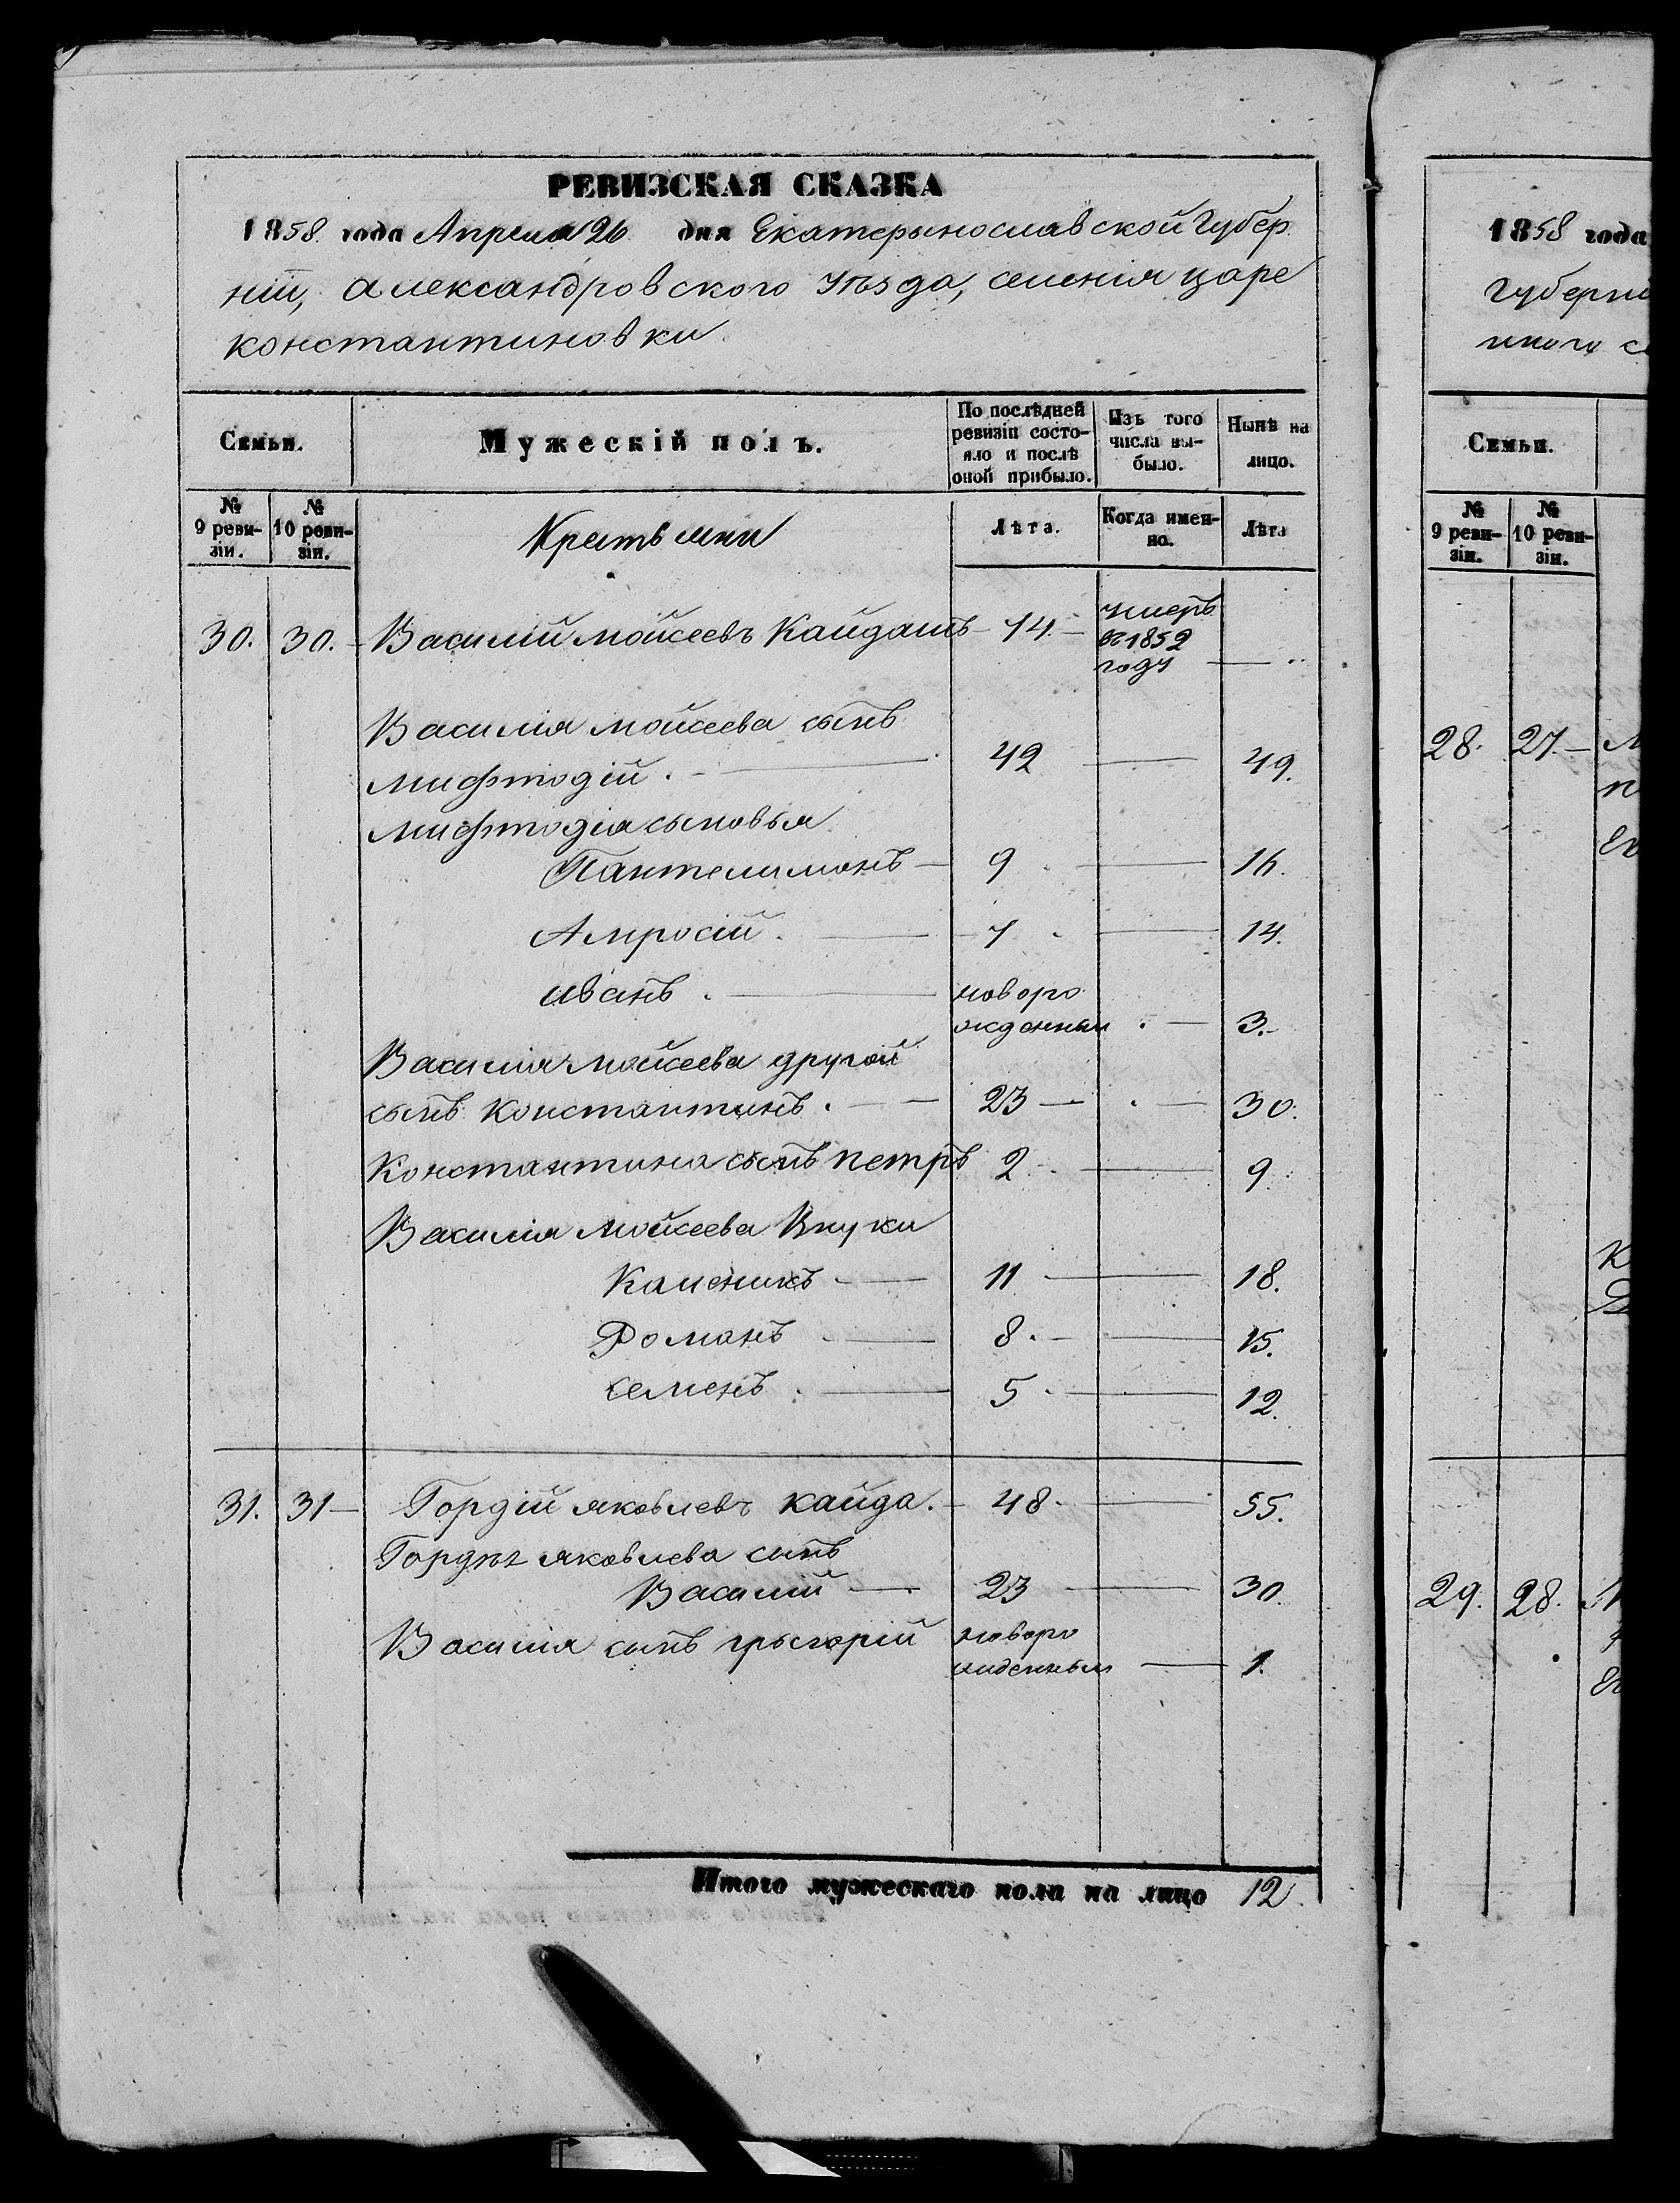 РЕВИЗСКАЯ СКАЗКА
1858 года Апреля 26 дня Екатерынославской Губер
ніи, Александровского Уъзда, селенія царе
константиновки
Семьи.
Мужескій полъ.
По послѣдней ревизіи состояло и послѣ оной прибыло.
Изъ того числа выбыло.
Нынѣ на лицо.
№ 9 ревизіи.
№ 10 ревизіи.
Лѣта.
Когда именно.
Лѣта
30. 30. Василій мойсеевъ Кайдашъ 74. умеръ
въ 1852
году
Василія мойсеева сынъ
мифтодій. 42 49.
мифтодія сыновья
Пантелимонъ 9 16.
Амросій. 7 14.
иванъ. новоро
жденный 3.
Василія мойсеева другой
сынъ константинъ. 23 30.
Константина сынъ петръ 2 9.
Василія мойсеева Внуки
Каленикъ 11 18.
Романъ 8. 15.
семенъ. 5 12.
31. 31 Гордій яковлевъ кайда. 48. 55.
яковлева сынъ
Василій 23 30.
Василія сынъ грыгорій новоро
жденный 1.
Итого мужескаго пола на лицо 12.
1858 года
Семьи.
№ 9 ревизіи.
№ 10 ревизіи.
28. 27.
29. 28.